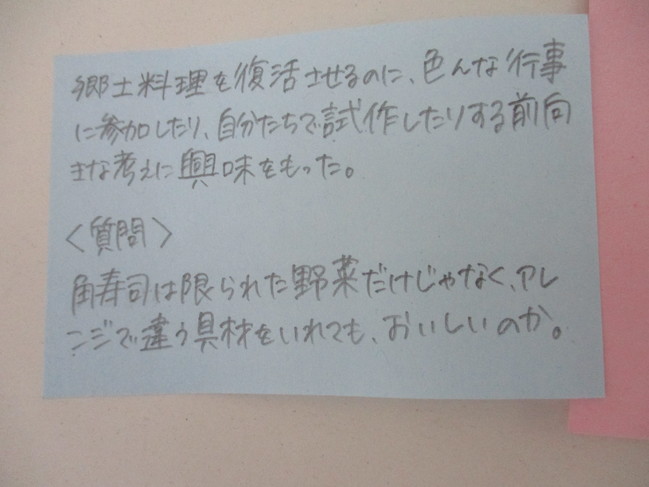 郷土料理を復活させるのに、色んな行事
に参加したり、自分たちで試作したりする前向
きな考えに興味をもった。
〈質問〉
角寿司は限られた野菜だけじゃなく、アレ
ンジで違う具材をいれても、おいしいのか。